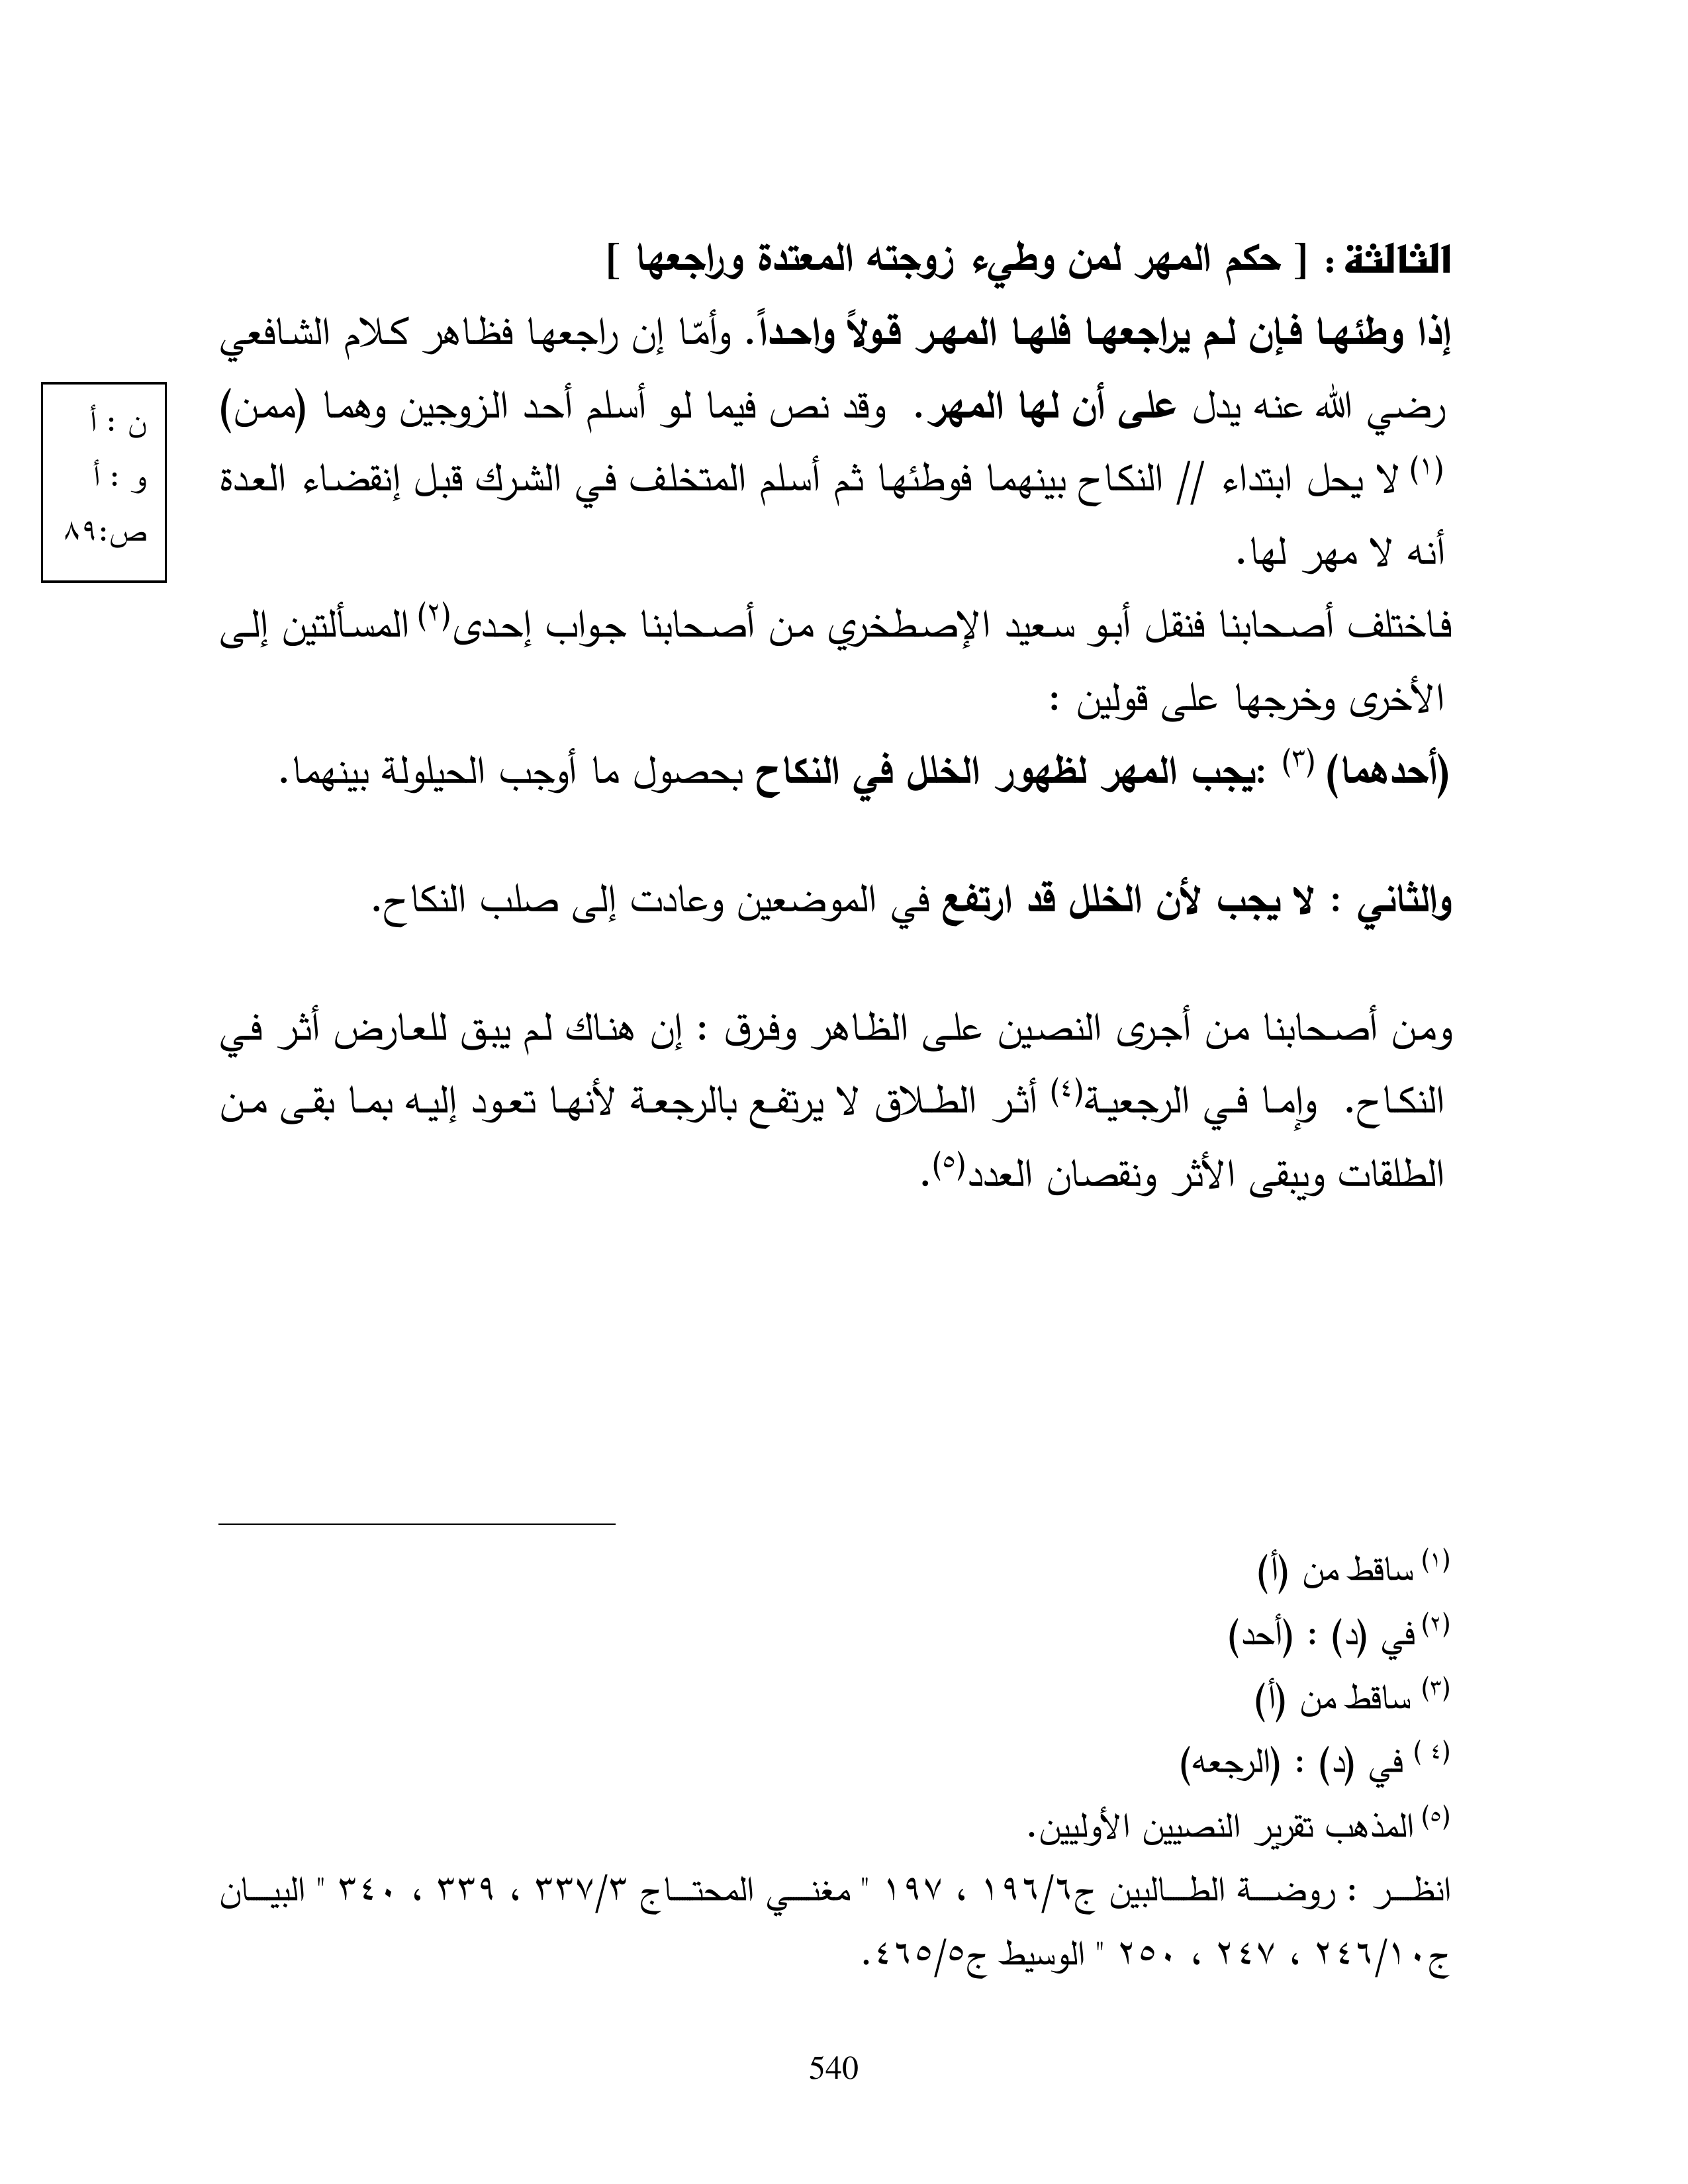 الثالثة : [ حكم المهر لمن وطيء زوجته المعتدة وراجعها ]
إذا وطئها فإن لم يراجعها فلها المهر قولاً واحداً. وأمّا إن راجعها فظاهر كلام الشافعي
رضي الله عنه يدل على أن لها المهر. وقد نص فيما لو أسلم أحد الزوجين وهما (ممن)
(١) لا يحل ابتداء // النكاح بينهما فوطئها ثم أسلم المتخلف في الشرك قبل إنقضاء العدة
أنه لا مهر لها.
ن : أ
و : أ
ص:٨٩
فاختلف أصحابنا فنقل أبو سعيد الإصطخري من أصحابنا جواب إحدى(٢) المسألتين إلى
الأخرى وخرجها على قولين :
(أحدهما) (٣) :يجب المهر لظهور الخلل في النكاح بحصول ما أوجب الحيلولة بينهما.
والثاني : لا يجب لأن الخلل قد ارتفع في الموضعين وعادت إلى صلب النكاح.
ومن أصحابنا من أجرى النصين على الظاهر وفرق : إن هناك لم يبق للعارض أثر في
النكاح. وإما في الرجعية(٤) أثر الطلاق لا يرتفع بالرجعة لأنها تعود إليه بما بقى من
الطلقات ويبقى الأثر ونقصان العدد(٥).
(١) ساقط من (أ)
(٢) في (د) : (أحد)
(٣) ساقط من (أ)
(٤ ) في (د) : (الرجعه)
(٥) المذهب تقرير النصيين الأوليين.
انظر : روضة الطالبين ج١٩٦/٦ ، ١٩٧ " مغني المحتاج ٣٣٧/٣ ، ٣٣٩ ، ٣٤٠ " البيان
ج٢٤٦/١٠ ، ٢٤٧ ، ٢٥٠ " الوسيط ج٤٦٥/٥.
540